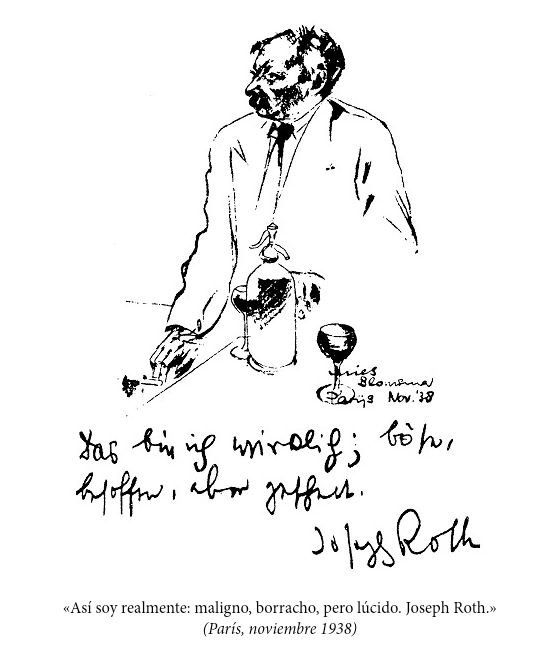 Mies
Blomsma
Parijs Nov.'38
Das bin ich wirklich; böse,
besoffen, aber gescheit.
Joseph Roth
«Así soy realmente: maligno, borracho, pero lúcido. Joseph Roth.»
(París, noviembre 1938)